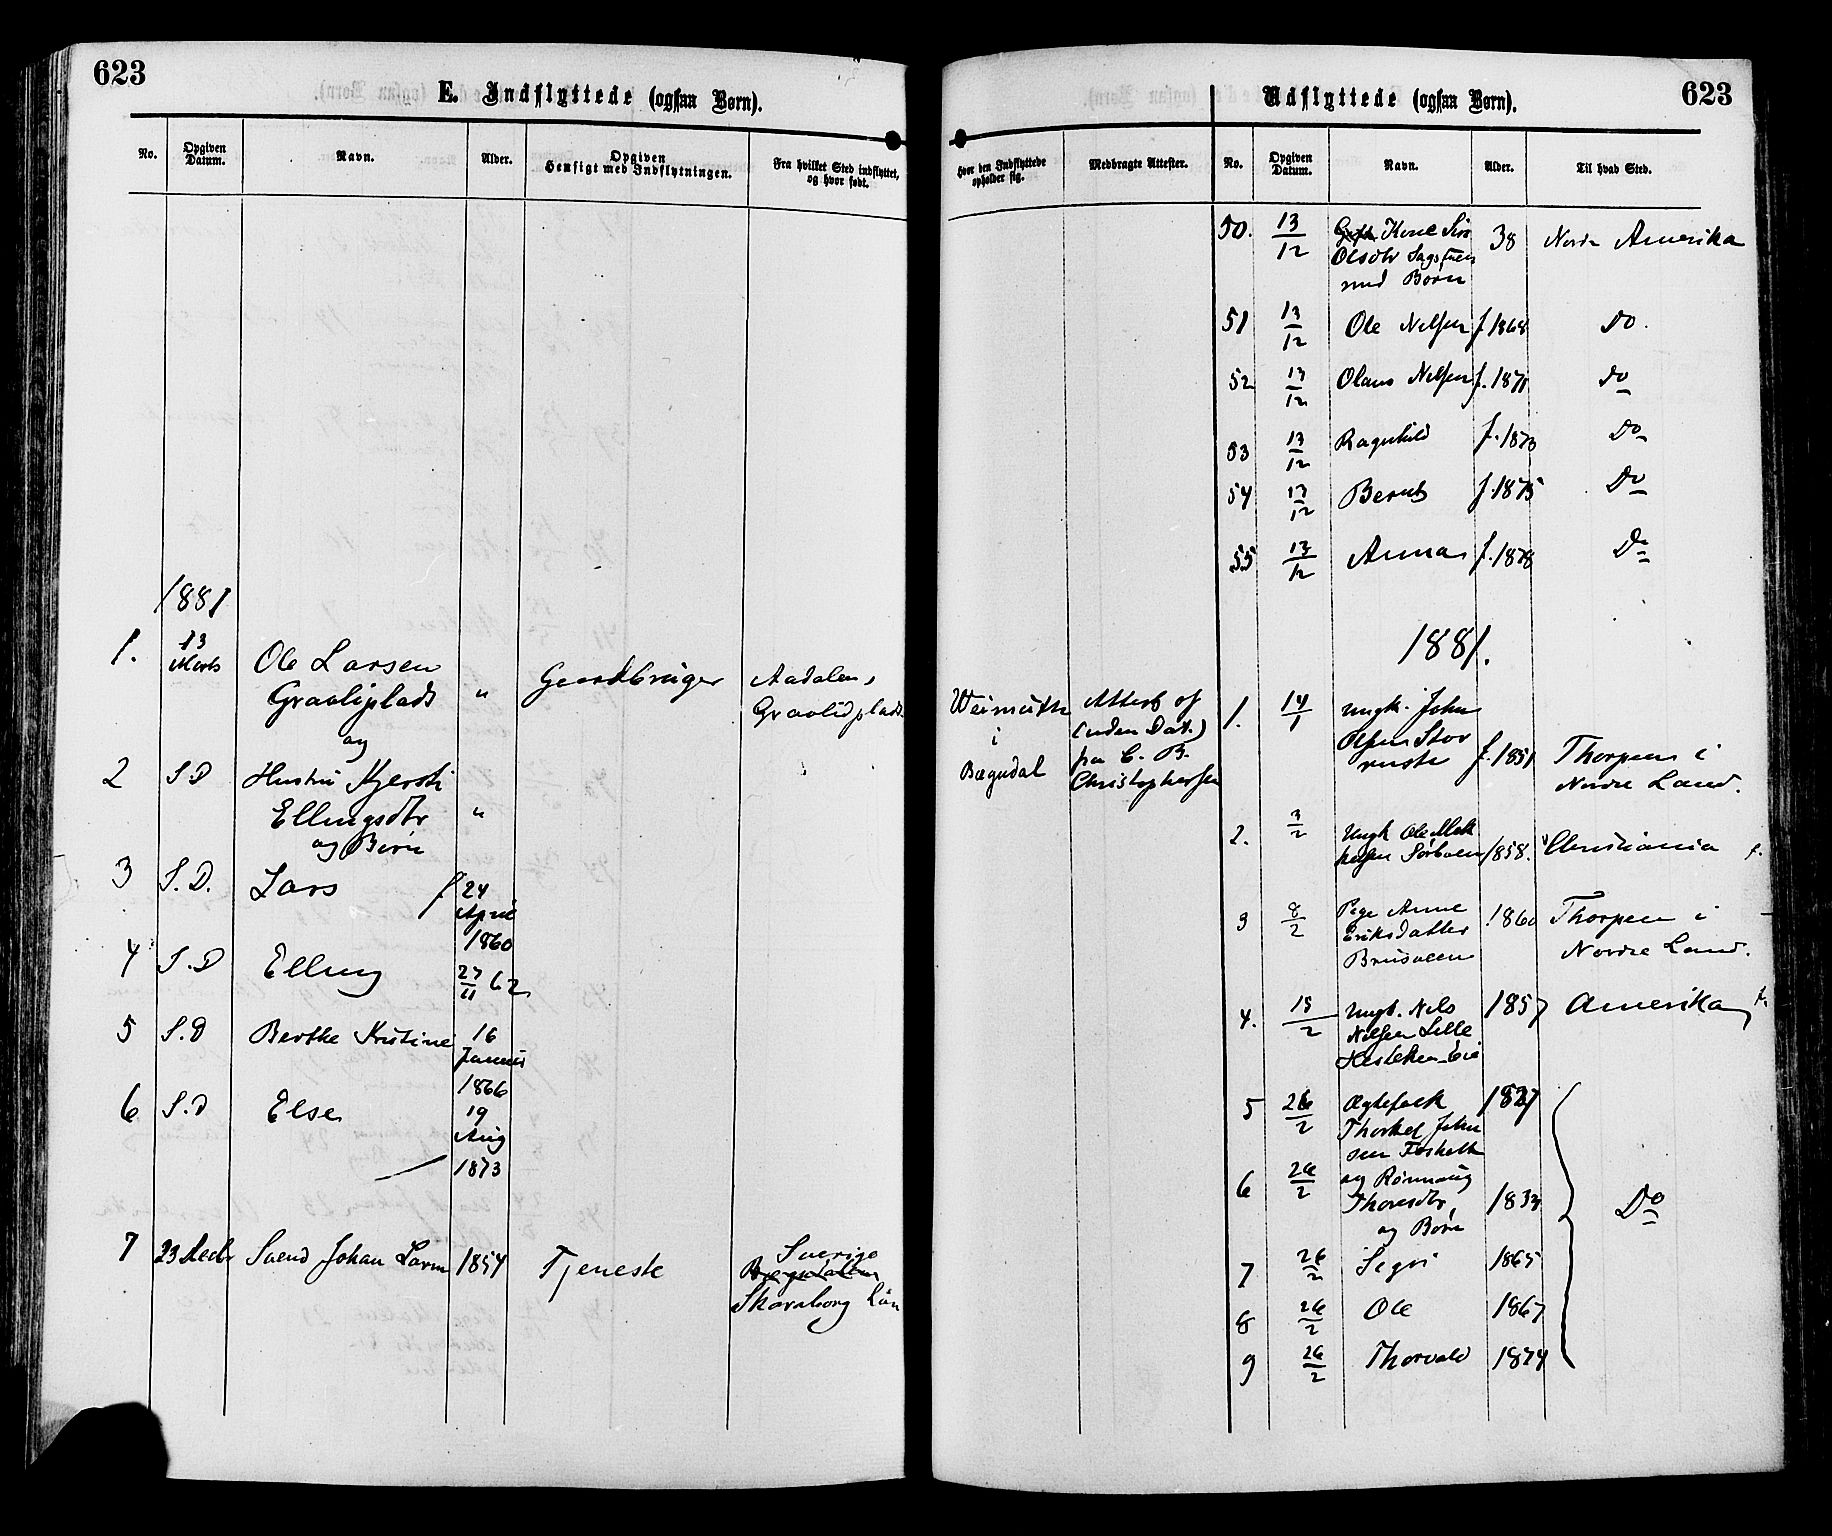 623
E. Indflyttede (ogsaa Børn).
No.
Opgiven Datum.
Navn.
Alder.
Opgiven Hensigt med Indflytningen.
Fra hvilket Sted indflyttet, og hvor født.
1881
1.
13 Marts
Ole Larsen
Gravliplads
og
"
Gaardbruger
Aadalen,
Gravlidplads
2
S D
Hustru Kjersti
Ellingsdtr
og Børn
"
3
S. D.
Lars
f 24
April
1860
4
S. D
Elling
27/11 62
5
S. D
Berthe Kristine
16
Januar
1866
6
S. D
Else
19
Aug
1873
7
23 Decbr
Svend Johan Larsn
1854
Tjeneste
Sverige
Bægndalen
Skaraborg Län
Udflyttede (ogsaa Børn).
623
Hvor den Indflyttede opholder sig.
Medbragte Attester.
No.
Opgiven Datum.
Navn.
Alder.
Til hvad Sted.
50.
13/12
Kone Siri
Olsdtr Sagstuen
med Børn
38
Nordr Amerika
51
13/12
Ole Nelsen
f. 1868
Do.
52
13/12
Olaus Nelsen
f. 1871
Do
53
13/12
Ragnhild
f. 1873
Do
54
13/12
Bernt
f. 1875
Do
55
13/12
Anna
f. 1878
Do
1881.
i
Bægndal
Attest af
(uden Dat.)
fra C. B.
Christophersen
1.
14/1
Ungk. John
Olsen Stor
ruste
f. 1851
Thorpen i
Nordre Land.
2.
3/2
Ungk Ole Mik
kelsen Sørboen
1858.
Christiania
f.
3
8/2
Pige Anne
Eriksdatter
Brusveen
1860
Thorpen i
Nordre Land.
4.
15/2
Ungk. Nils
Nelsen Lille
1857
Amerika
5
26/2
Ægtefolk
Thorkel John
sen
1827
6
26/2
og Rønnaug
Thoresdtr
og Børn
1833
Do
7
26/2
Sigri
1865
8
26/2
Ole
1867
9
26/2
Thorvald
1874